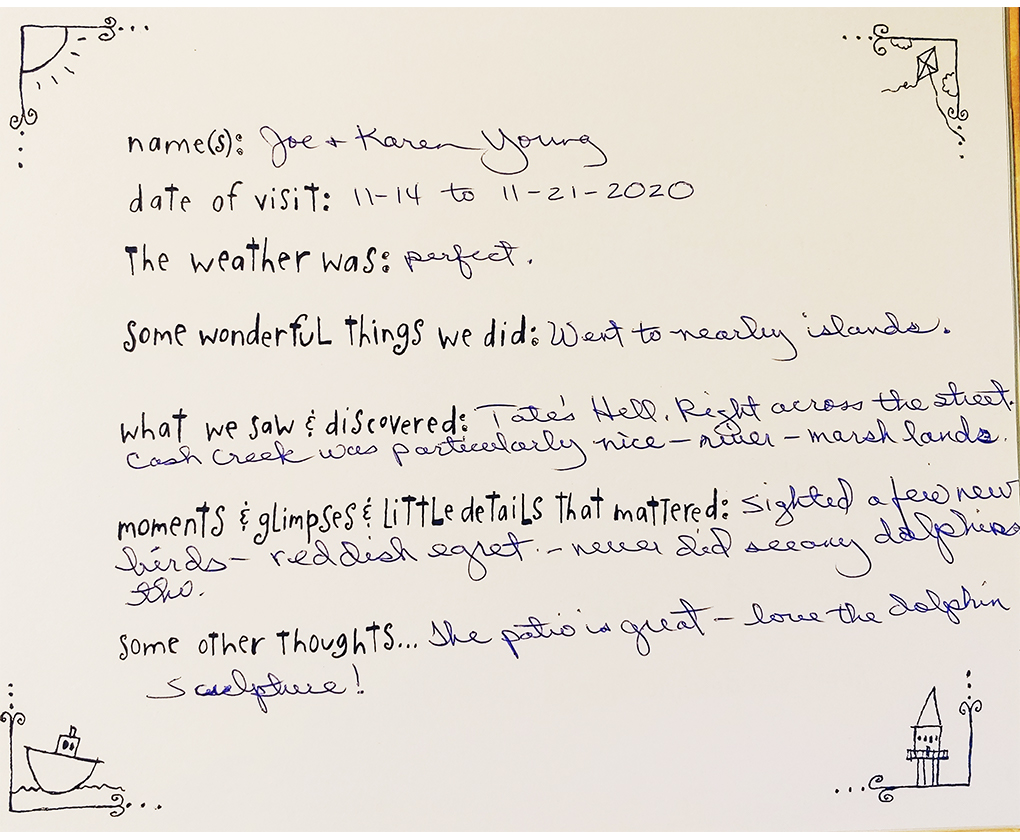 name(s): Joe + Karen Young
date of visit: 11-14 to 11-21-2020
The weather was: perfect.
some wonderful things we did: Went to nearby islands.
what we saw & discovered: Tate's Hell. Right across the street.
Cash Creek was particularly nice - river - marsh lands.
moments & glimpses & little details that mattered: Sighted a few new
birds - reddish egret - never did see any dolphins
tho.
some other thoughts... The patio is great - love the dolphin
sculpture!